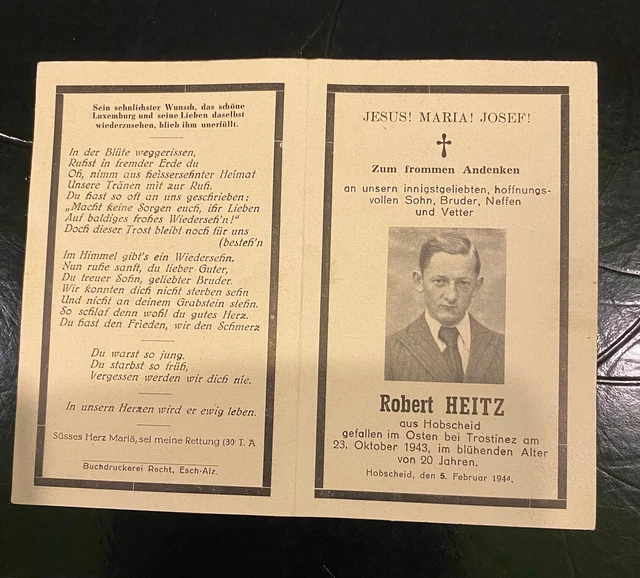 Sein sehnlichster Wunsch, das schöne
Luxemburg und seine Lieben daselbst
wiederzusehen, blieb ihm unerfüllt.
In der Blüte weggerissen,
Ruhst in fremder Erde du
Oh, nimm aus heissersehnter Heimat
Unsere Tränen mit zur Ruh.
Du hast so oft an uns geschrieben:
„Macht keine Sorgen euch, ihr Lieben
Auf baldiges frohes Wiederseh'n!"
Doch dieser Trost bleibt noch für uns
(besteh'n
Im Himmel gibt's ein Wiedersehn.
Nun ruhe sanft, du lieber Guter,
Du treuer Sohn, geliebter Bruder.
Wir konnten dich nicht sterben sehn
Und nicht an deinem Grabstein stehn.
So schlaf denn wohl du gutes Herz.
Du hast den Frieden, wir den Schmerz
Du warst so jung.
Du starbst so früh,
Vergessen werden wir dich nie.
In unsern Herzen wird er ewig leben.
Süsses Herz Mariä, sei meine Rettung (30 T. A
Buchdruckerei Recht, Esch-Alz.
JESUS! MARIA! JOSEF!
Zum frommen Andenken
an unsern innigstgeliebten, hoffnungs-
vollen Sohn, Bruder, Neffen
und Vetter
Robert HEITZ
aus Hobscheid
gefallen im Osten bei Trostinez am
23. Oktober 1943, im blühenden Alter
von 20 Jahren.
Hobscheid, den 5. Februar 1944.